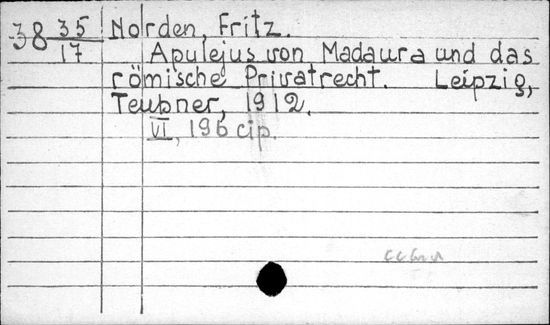 38 35/17 Norden, Fritz.
Apulejus von Madaura und das
römische Privatrecht. Leipzig,
Teubner, 1912.
VI, 196 cip.